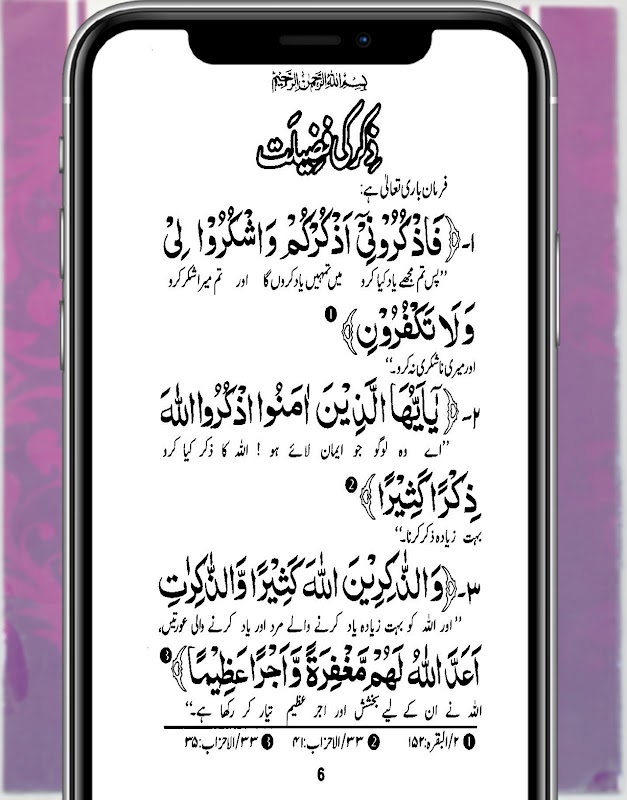 بِسْمِ اللّٰهِ الرَّحْمٰنِ الرَّحِيْمِ
ذِکر کی فضِیلت
فرمان باری تعالیٰ ہے:
۱۔﴿فَاذْكُرُوْنِيْٓ اَذْكُرْكُمْ وَاشْكُرُوْا لِيْ
”پس تم مجھے یاد کیا کرو میں تمہیں یاد کروں گا اور تم میرا شکر کرو
وَلَا تَكْفُرُوْنِ﴾ ❶
اور میری ناشکری نہ کرو۔“
۲۔﴿يٰٓاَيُّهَا الَّذِيْنَ اٰمَنُوا اذْكُرُوا اللّٰهَ
”اے وہ لوگو جو ایمان لائے ہو! اللہ کا ذکر کیا کرو
ذِكْرًا كَثِيْرًا﴾ ❷
بہت زیادہ ذکر کرنا۔“
۳۔﴿وَالذّٰكِرِيْنَ اللّٰهَ كَثِيْرًا وَّالذّٰكِرٰتِ
”اور اللہ کو بہت زیادہ یاد کرنے والے مرد اور یاد کرنے والی عورتیں،
اَعَدَّ اللّٰهُ لَهُمْ مَّغْفِرَةً وَّاَجْرًا عَظِيْمًا﴾ ❸
اللہ نے ان کے لیے بخشش اور اجر عظیم تیار کر رکھا ہے۔“
❶ ۲/البقرہ:۱۵۲ ❷ ۳۳/الاحزاب:۴۱ ❸ ۳۳/الاحزاب:۳۵
6